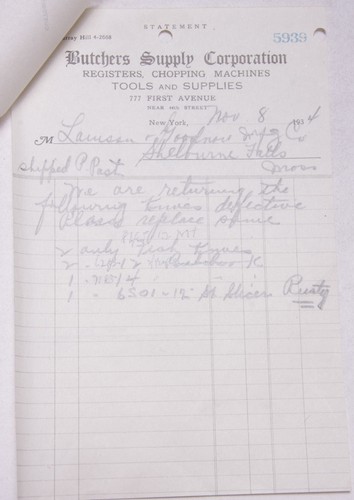 STATEMENT
Hill 4-2558
5939
Butchers Supply Corporation
REGISTERS, CHOPPING MACHINES
TOOLS AND SUPPLIES
777 FIRST AVENUE
NEAR STREET
New York, Nov 8 1934
M Lamson & Goodnow Mfg Co
Shelbourne Falls
Shipped P. Post Mass
We are returning the
following knives defective
please replace same
2 only fish knives
2 - 12
1 - 14
1 - 6501-12" St Slicer Rusty